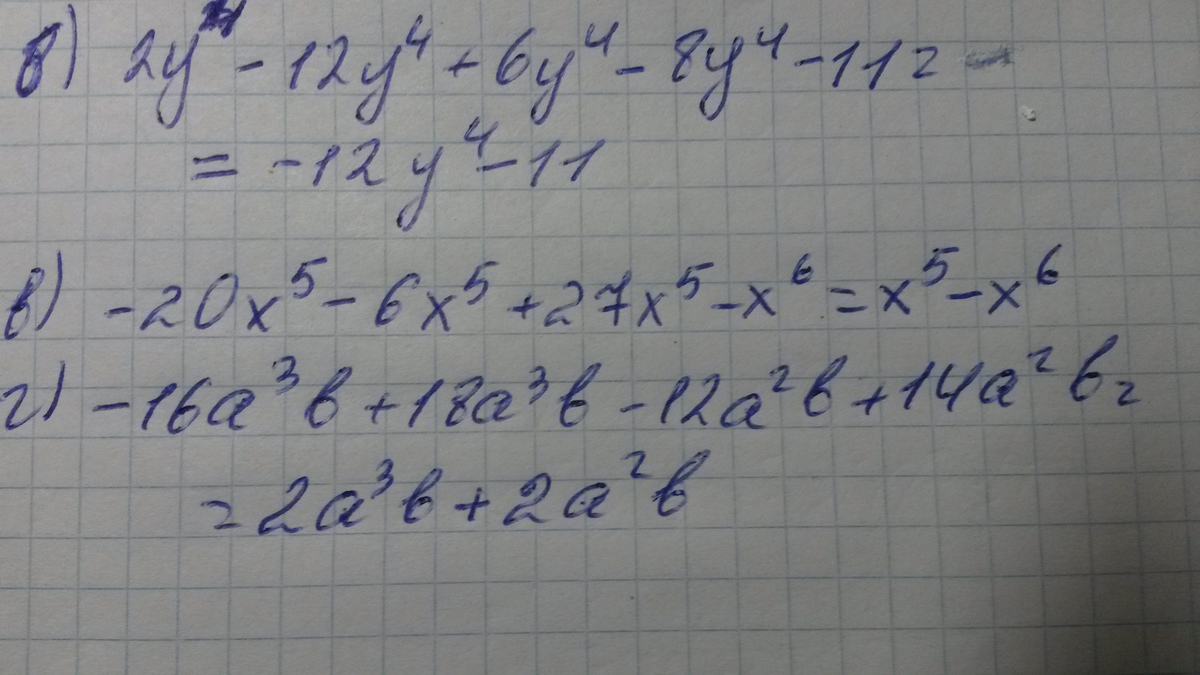 б) 2y⁴ - 12y⁴ + 6y⁴ - 8y⁴ - 11 =
= -12y⁴ - 11
в) -20x⁵ - 6x⁵ + 27x⁵ - x⁶ = x⁵ - x⁶
г) -16a³b + 18a³b - 12a²b + 14a²b =
= 2a³b + 2a²b